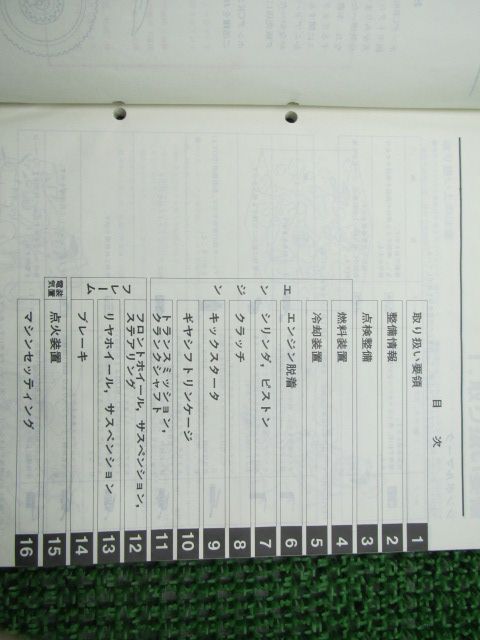 目 次
取り扱い要領 1
整備情報 2
点検整備 3
エンジン
燃料装置 4
冷却装置 5
エンジン脱着 6
シリンダ, ピストン 7
クラッチ 8
キックスタータ 9
ギヤシフトリンケージ 10
トランスミッション,
クランクシャフト 11
フレーム
フロントホイール, サスペンション,
ステアリング 12
リヤホイール, サスペンション 13
ブレーキ 14
電気装置
点火装置 15
マシンセッティング 16